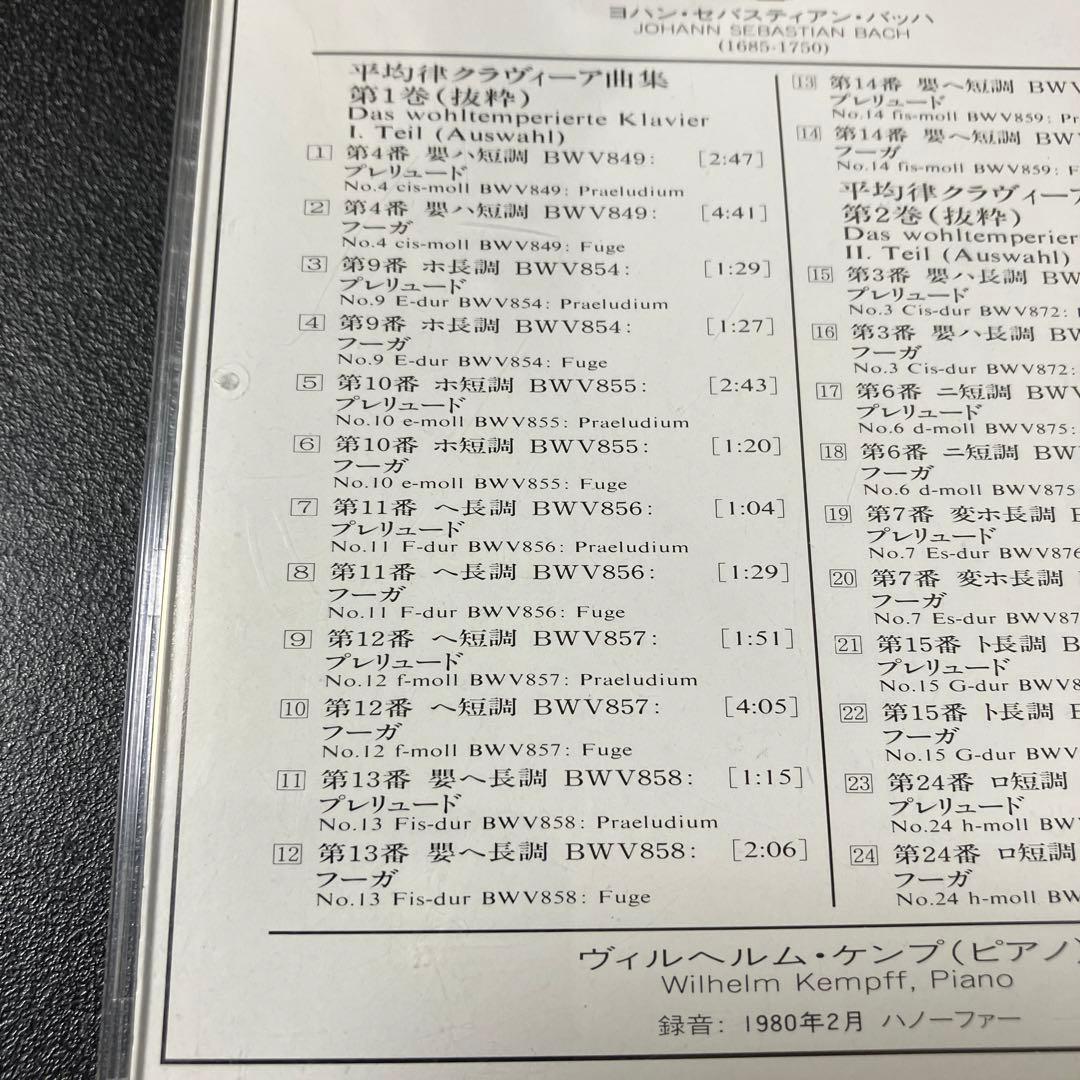 ヨハン・セバスティアン・バッハ
JOHANN SEBASTIAN BACH
(1685-1750)
平均律クラヴィーア曲集
第1巻(抜粋)
Das wohltemperierte Klavier
I. Teil (Auswahl)
1 第4番 嬰ハ短調 BWV849: [2:47]
プレリュード
No.4 cis-moll BWV849: Praeludium
2 第4番 嬰ハ短調 BWV849: [4:41]
フーガ
No.4 cis-moll BWV849: Fuge
3 第9番 ホ長調 BWV854: [1:29]
プレリュード
No.9 E-dur BWV854: Praeludium
4 第9番 ホ長調 BWV854: [1:27]
フーガ
No.9 E-dur BWV854: Fuge
5 第10番 ホ短調 BWV855: [2:43]
プレリュード
No.10 e-moll BWV855: Praeludium
6 第10番 ホ短調 BWV855: [1:20]
フーガ
No.10 e-moll BWV855: Fuge
7 第11番 ヘ長調 BWV856: [1:04]
プレリュード
No.11 F-dur BWV856: Praeludium
8 第11番 ヘ長調 BWV856: [1:29]
フーガ
No.11 F-dur BWV856: Fuge
9 第12番 ヘ短調 BWV857: [1:51]
プレリュード
No.12 f-moll BWV857: Praeludium
10 第12番 ヘ短調 BWV857: [4:05]
フーガ
No.12 f-moll BWV857: Fuge
11 第13番 嬰ヘ長調 BWV858: [1:15]
プレリュード
No.13 Fis-dur BWV858: Praeludium
12 第13番 嬰ヘ長調 BWV858: [2:06]
フーガ
No.13 Fis-dur BWV858: Fuge
13 第14番 嬰ヘ短調 BWV
プレリュード
No.14 fis-moll BWV859: Pr
14 第14番 嬰ヘ短調 BW
フーガ
No.14 fis-moll BWV859: F
平均律クラヴィーア
第2巻(抜粋)
Das wohltemperier
II. Teil (Auswahl)
15 第3番 嬰ハ長調 BW
プレリュード
No.3 Cis-dur BWV872:
16 第3番 嬰ハ長調 BW
フーガ
No.3 Cis-dur BWV872:
17 第6番 ニ短調 BWV
プレリュード
No.6 d-moll BWV875:
18 第6番 ニ短調 BW
フーガ
No.6 d-moll BWV875
19 第7番 変ホ長調 B
プレリュード
No.7 Es-dur BWV876
20 第7番 変ホ長調
フーガ
No.7 Es-dur BWV87
21 第15番 ト長調 B
プレリュード
No.15 G-dur BWV8
22 第15番 ト長調 B
フーガ
No.15 G-dur BWV
23 第24番 ロ短調
プレリュード
No.24 h-moll BW
24 第24番 ロ短調
フーガ
No.24 h-moll BW
ヴィルヘルム・ケンプ(ピアノ)
Wilhelm Kempff, Piano
録音: 1980年2月 ハノーファー